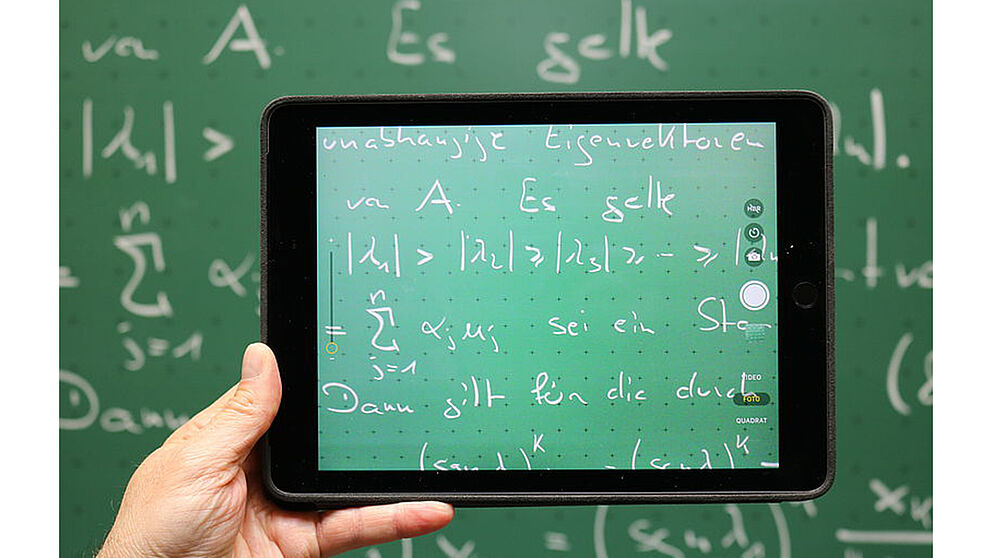 von A. Es gelte
|λ₁| >
n
= Σ
j=1
Dann
unabhängige Eigenvektoren
von A. Es gelte
|λ₁| > |λ₂| ≥ |λ₃| ≥ … ≥ |λₙ
n
= Σ αⱼ uⱼ sei ein
j=1
Dann gilt für die durch
HDR
VIDEO
FOTO
QUADRAT